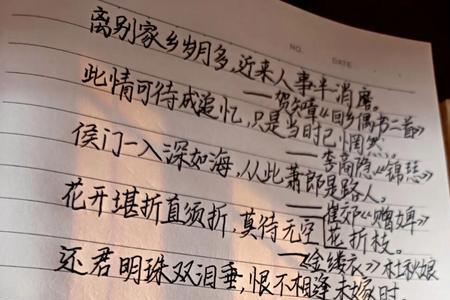 NO. DATE
离别家乡岁月多,近来人事半消磨。
——贺知章《回乡偶书二首》
此情可待成追忆,只是当时已惘然。
——李商隐《锦瑟》
侯门一入深如海,从此萧郎是路人。
——崔郊《赠婢》
花开堪折直须折,莫待无空花折枝。
——《金缕衣》杜秋娘
还君明珠双泪垂,恨不相逢未嫁时